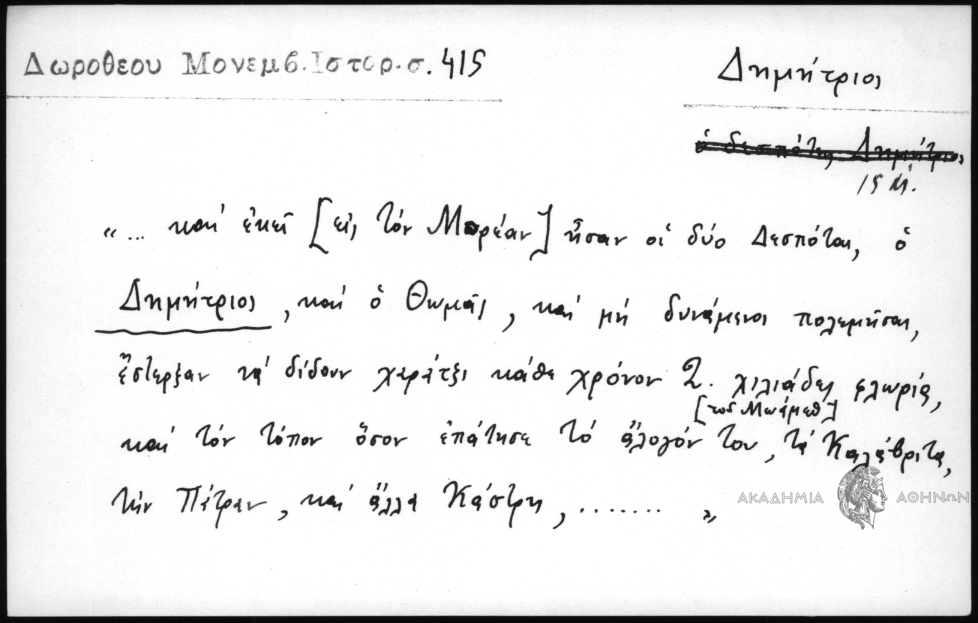 Δωροθεου Μονεμβ. Ιστορ. σ. 415
Δημήτριος
ὁ δεσπότης Δημήτριος
15 Μ.
“... καί ἐκεῖ [εἰς τόν Μορέαν] ἦσαν οἱ δύο Δεσπόται, ὁ
Δημήτριος, καί ὁ Θωμᾶς, καί μή δυνάμενοι πολεμῆσαι,
ἔστερξαν νά δίδουν χαράτζι κάθε χρόνον 2. χιλιάδες φλωρία,
[τοῦ Μωάμεθ]
καί τόν τόπον ὅσον ἐπάτησε τό ἄλογόν του, τά Καλάβριτα,
τήν Πέτραν, καί ἄλλα Κάστρη, ....... „
ΑΚΑΔΗΜΙΑ ΑΘΗΝΩΝ